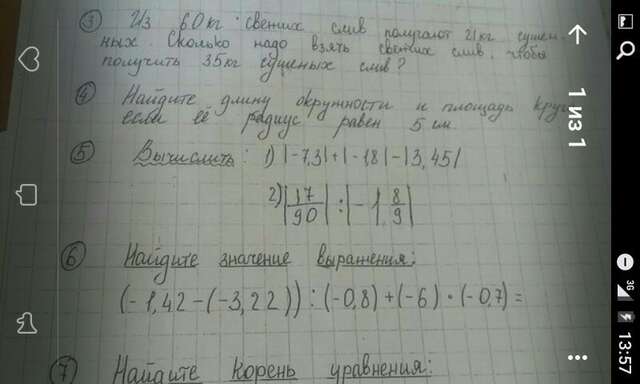 ③ Из 60 кг свежих слив получают 21 кг сушен-
ных. Сколько надо взять свежих слив, чтобы
получить 35 кг сушеных слив?
④ Найдите длину окружности и площадь круг
если её радиус равен 5 см.
⑤ Вычислить: 1) |-7,3|+|-1,8|-|3,45|
2) |17/90| : |-1 8/9|
⑥ Найдите значение выражения:
(-1,42-(-3,22)):(-0,8)+(-6)·(-0,7)=
⑦ Найдите корень уравнения:
1 из 1
3G
13:57